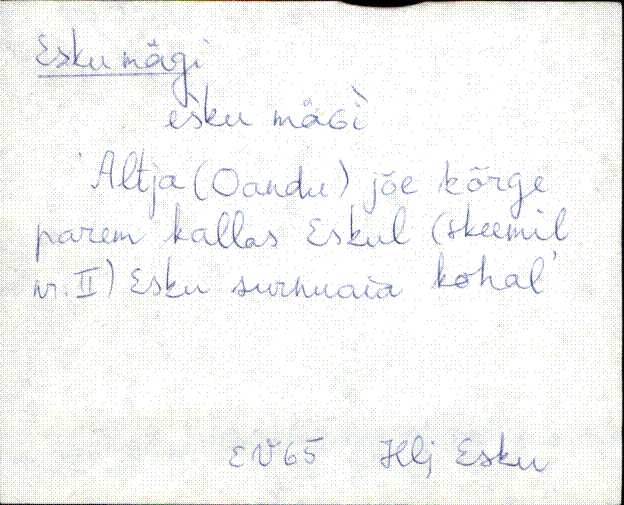 Esku mägi
èsku mäGì
'Altja (Oandu) jõe kõrge
parem kallas Eskul (skeemil
nr. II) Esku surnuaia kohal'
EV65 Hlj Esku